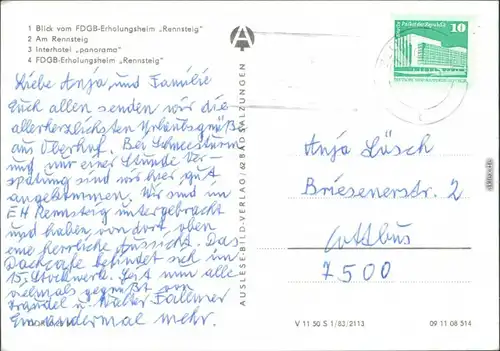 1 Blick vom FDGB-Erholungsheim „Rennsteig"
2 Am Rennsteig
3 Interhotel „panorama"
4 FDGB-Erholungsheim „Rennsteig"
Liebe Anja und Familie
Euch allen senden wir die
allerherzlichsten Urlaubsgrüße
aus Oberhof. Bei Schneesturm
und nur einer Stunde Ver-
spätung sind wir hier gut
angekommen. Wir sind im
EH Rennsteig untergebracht
und haben von dort oben
eine herrliche Aussicht. Das
Dachcafe befindet sich im
15. Stockwerk. Seit nun alle
vielmals gegrüßt von
Traudel u. Walter
Ein andermal mehr.
AUSLESE-BILD-VERLAG / 62 BAD SALZUNGEN
Palast der Republik
10
Anja Lösch
Briesenerstr. 2
Cottbus
7500
V 11 50 S 1/83/2113
09 11 08 514